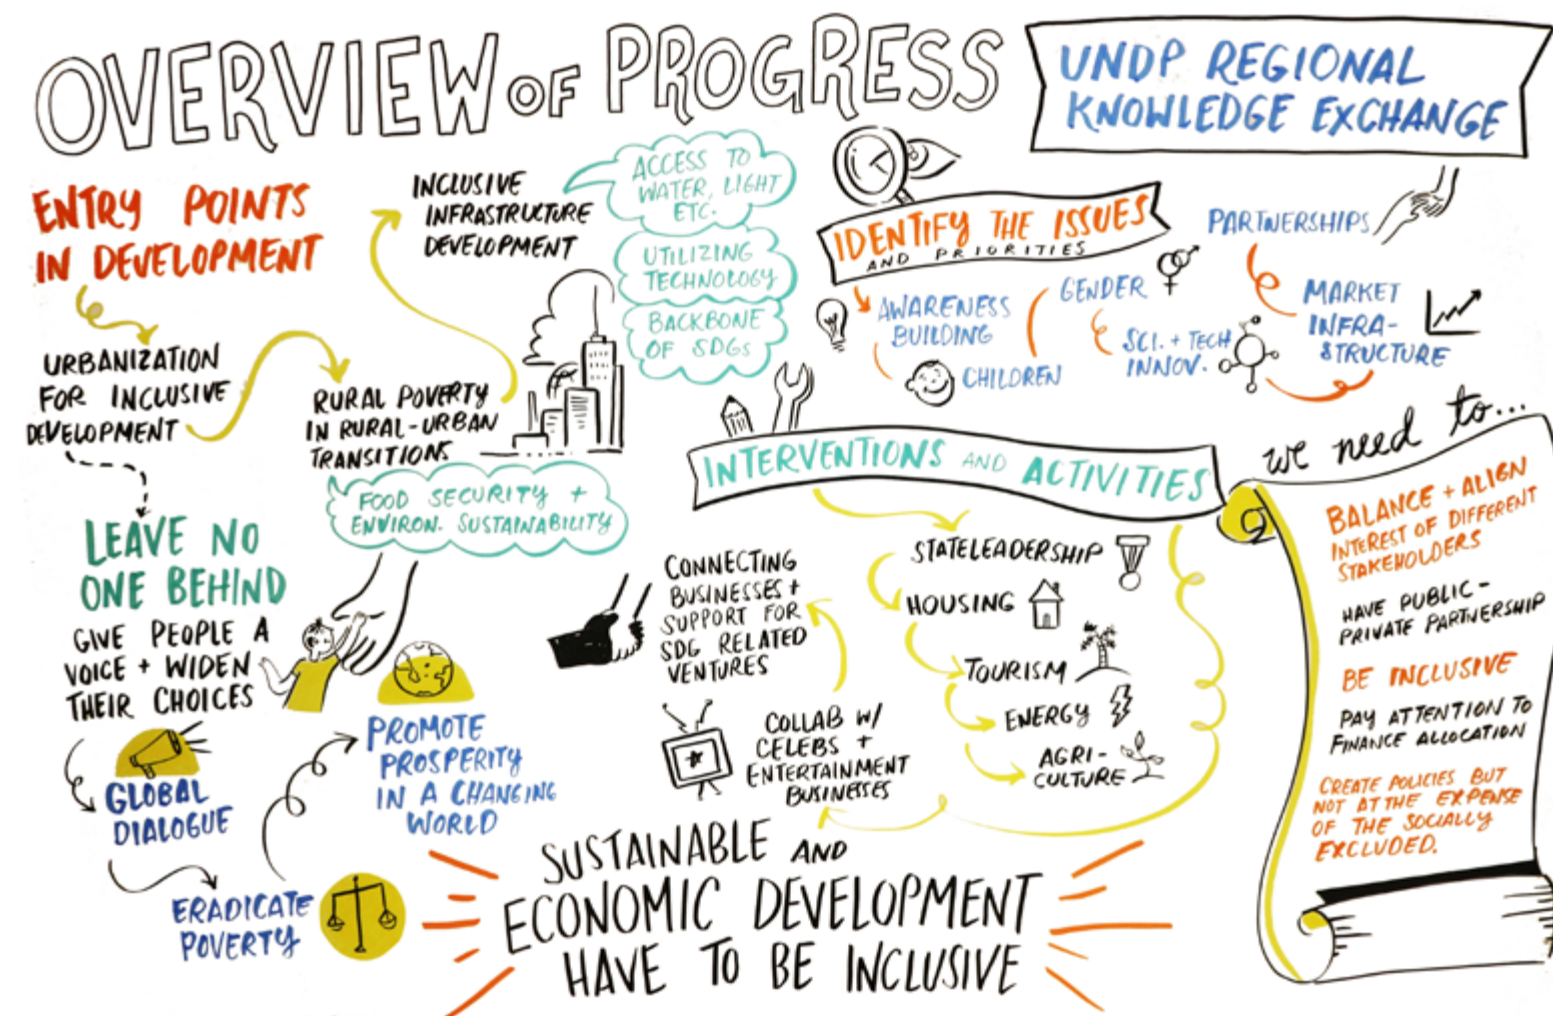 OVERVIEW OF PROGRESS
UNDP REGIONAL
KNOWLEDGE EXCHANGE
ENTRY POINTS
IN DEVELOPMENT
URBANIZATION
FOR INCLUSIVE
DEVELOPMENT
RURAL POVERTY
IN RURAL-URBAN
TRANSITIONS
FOOD SECURITY +
ENVIRON. SUSTAINABILITY
INCLUSIVE
INFRASTRUCTURE
DEVELOPMENT
ACCESS TO
WATER, LIGHT
ETC.
UTILIZING
TECHNOLOGY
BACKBONE
OF SDGs
LEAVE NO
ONE BEHIND
GIVE PEOPLE A
VOICE + WIDEN
THEIR CHOICES
GLOBAL
DIALOGUE
ERADICATE
POVERTY
PROMOTE
PROSPERITY
IN A CHANGING
WORLD
IDENTIFY THE ISSUES
AND PRIORITIES
AWARENESS
BUILDING
CHILDREN
GENDER
SCI. + TECH
INNOV.
MARKET
INFRA-
STRUCTURE
PARTNERSHIPS
INTERVENTIONS AND ACTIVITIES
STATELEADERSHIP
HOUSING
TOURISM
ENERGY
AGRI-
CULTURE
COLLAB W/
CELEBS +
ENTERTAINMENT
BUSINESSES
CONNECTING
BUSINESSES +
SUPPORT FOR
SDG RELATED
VENTURES
we need to...
BALANCE + ALIGN
INTEREST OF DIFFERENT
STAKEHOLDERS
HAVE PUBLIC-
PRIVATE PARTNERSHIP
BE INCLUSIVE
PAY ATTENTION TO
FINANCE ALLOCATION
CREATE POLICIES BUT
NOT AT THE EXPENSE
OF THE SOCIALLY
EXCLUDED.
SUSTAINABLE AND
ECONOMIC DEVELOPMENT
HAVE TO BE INCLUSIVE